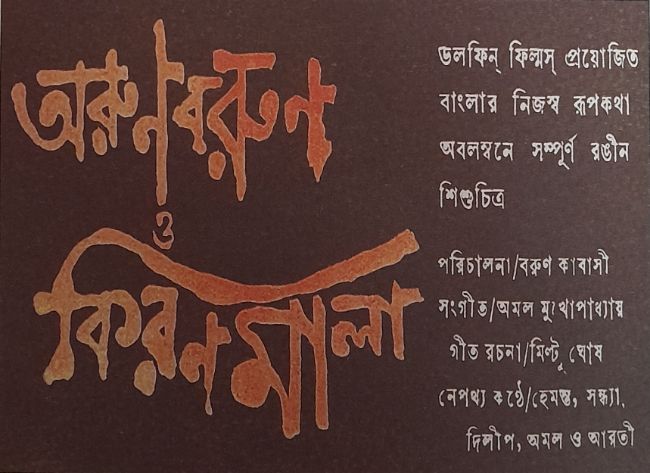 অরুণ বরুণ
ও
কিরণমালা
ডলফিন্ ফিল্মস্ প্রয়োজিত
বাংলার নিজস্ব রূপকথা
অবলম্বনে সম্পূর্ণ রঙীন
শিশুচিত্র
পরিচালনা/বরুণ কাবাসী
সংগীত/অমল মুখোপাধ্যায়
গীত রচনা/মিল্টু ঘোষ
নেপথ্য কণ্ঠে/হেমন্ত, সন্ধ্যা,
দিলীপ, অমল ও আরতী